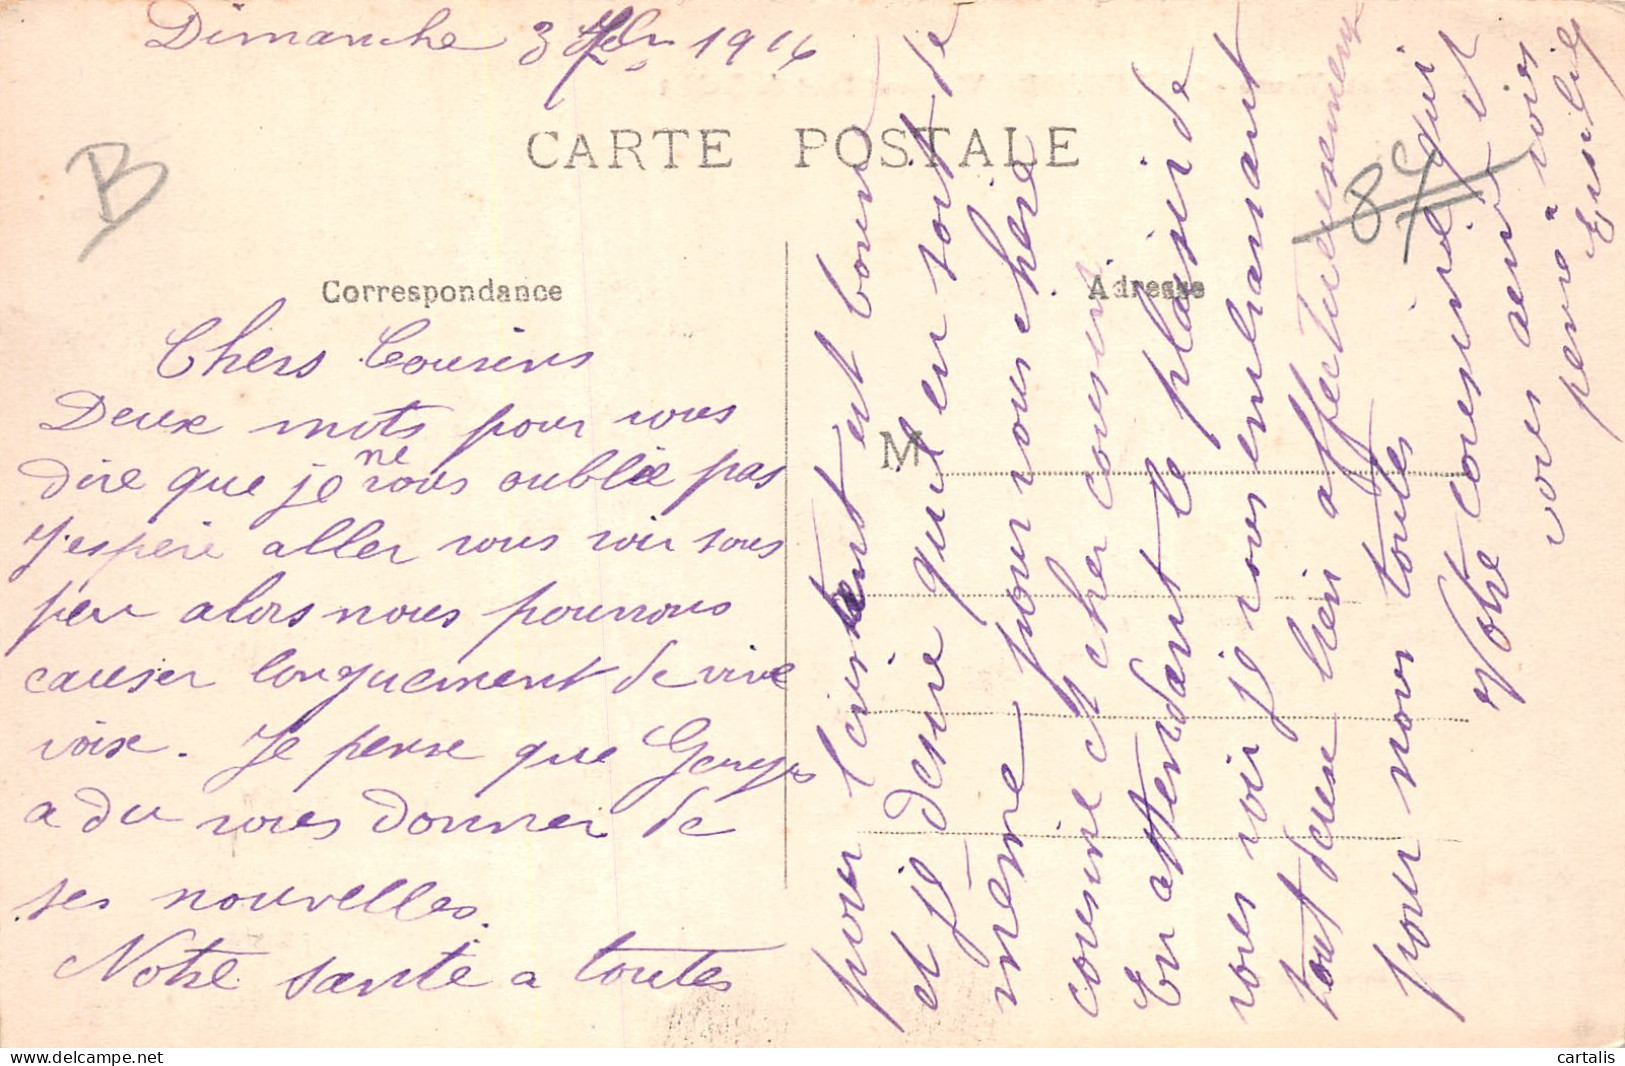 Dimanche 3 7bre 1916
B
8€
CARTE POSTALE
Correspondance
Adresse
M
Chers Cousins
Deux mots pour vous
dire que je ne vous oublie pas
J'espère aller vous voir sous
peu alors nous pourrons
causer longuement de vive
voix. Je pense que Georges
a du vous donner de
ses nouvelles.
Notre santé a toutes
pour l'instant est bonne
et je desire qu'il en soit de
même pour vous chère
cousine et cher cousin
En attendant le plaisir de
vous voir je vous embrassant
tout deux bien affectueusement
pour nous toutes
Votre cousine qui
vous aime et
pense à vous
cartalis